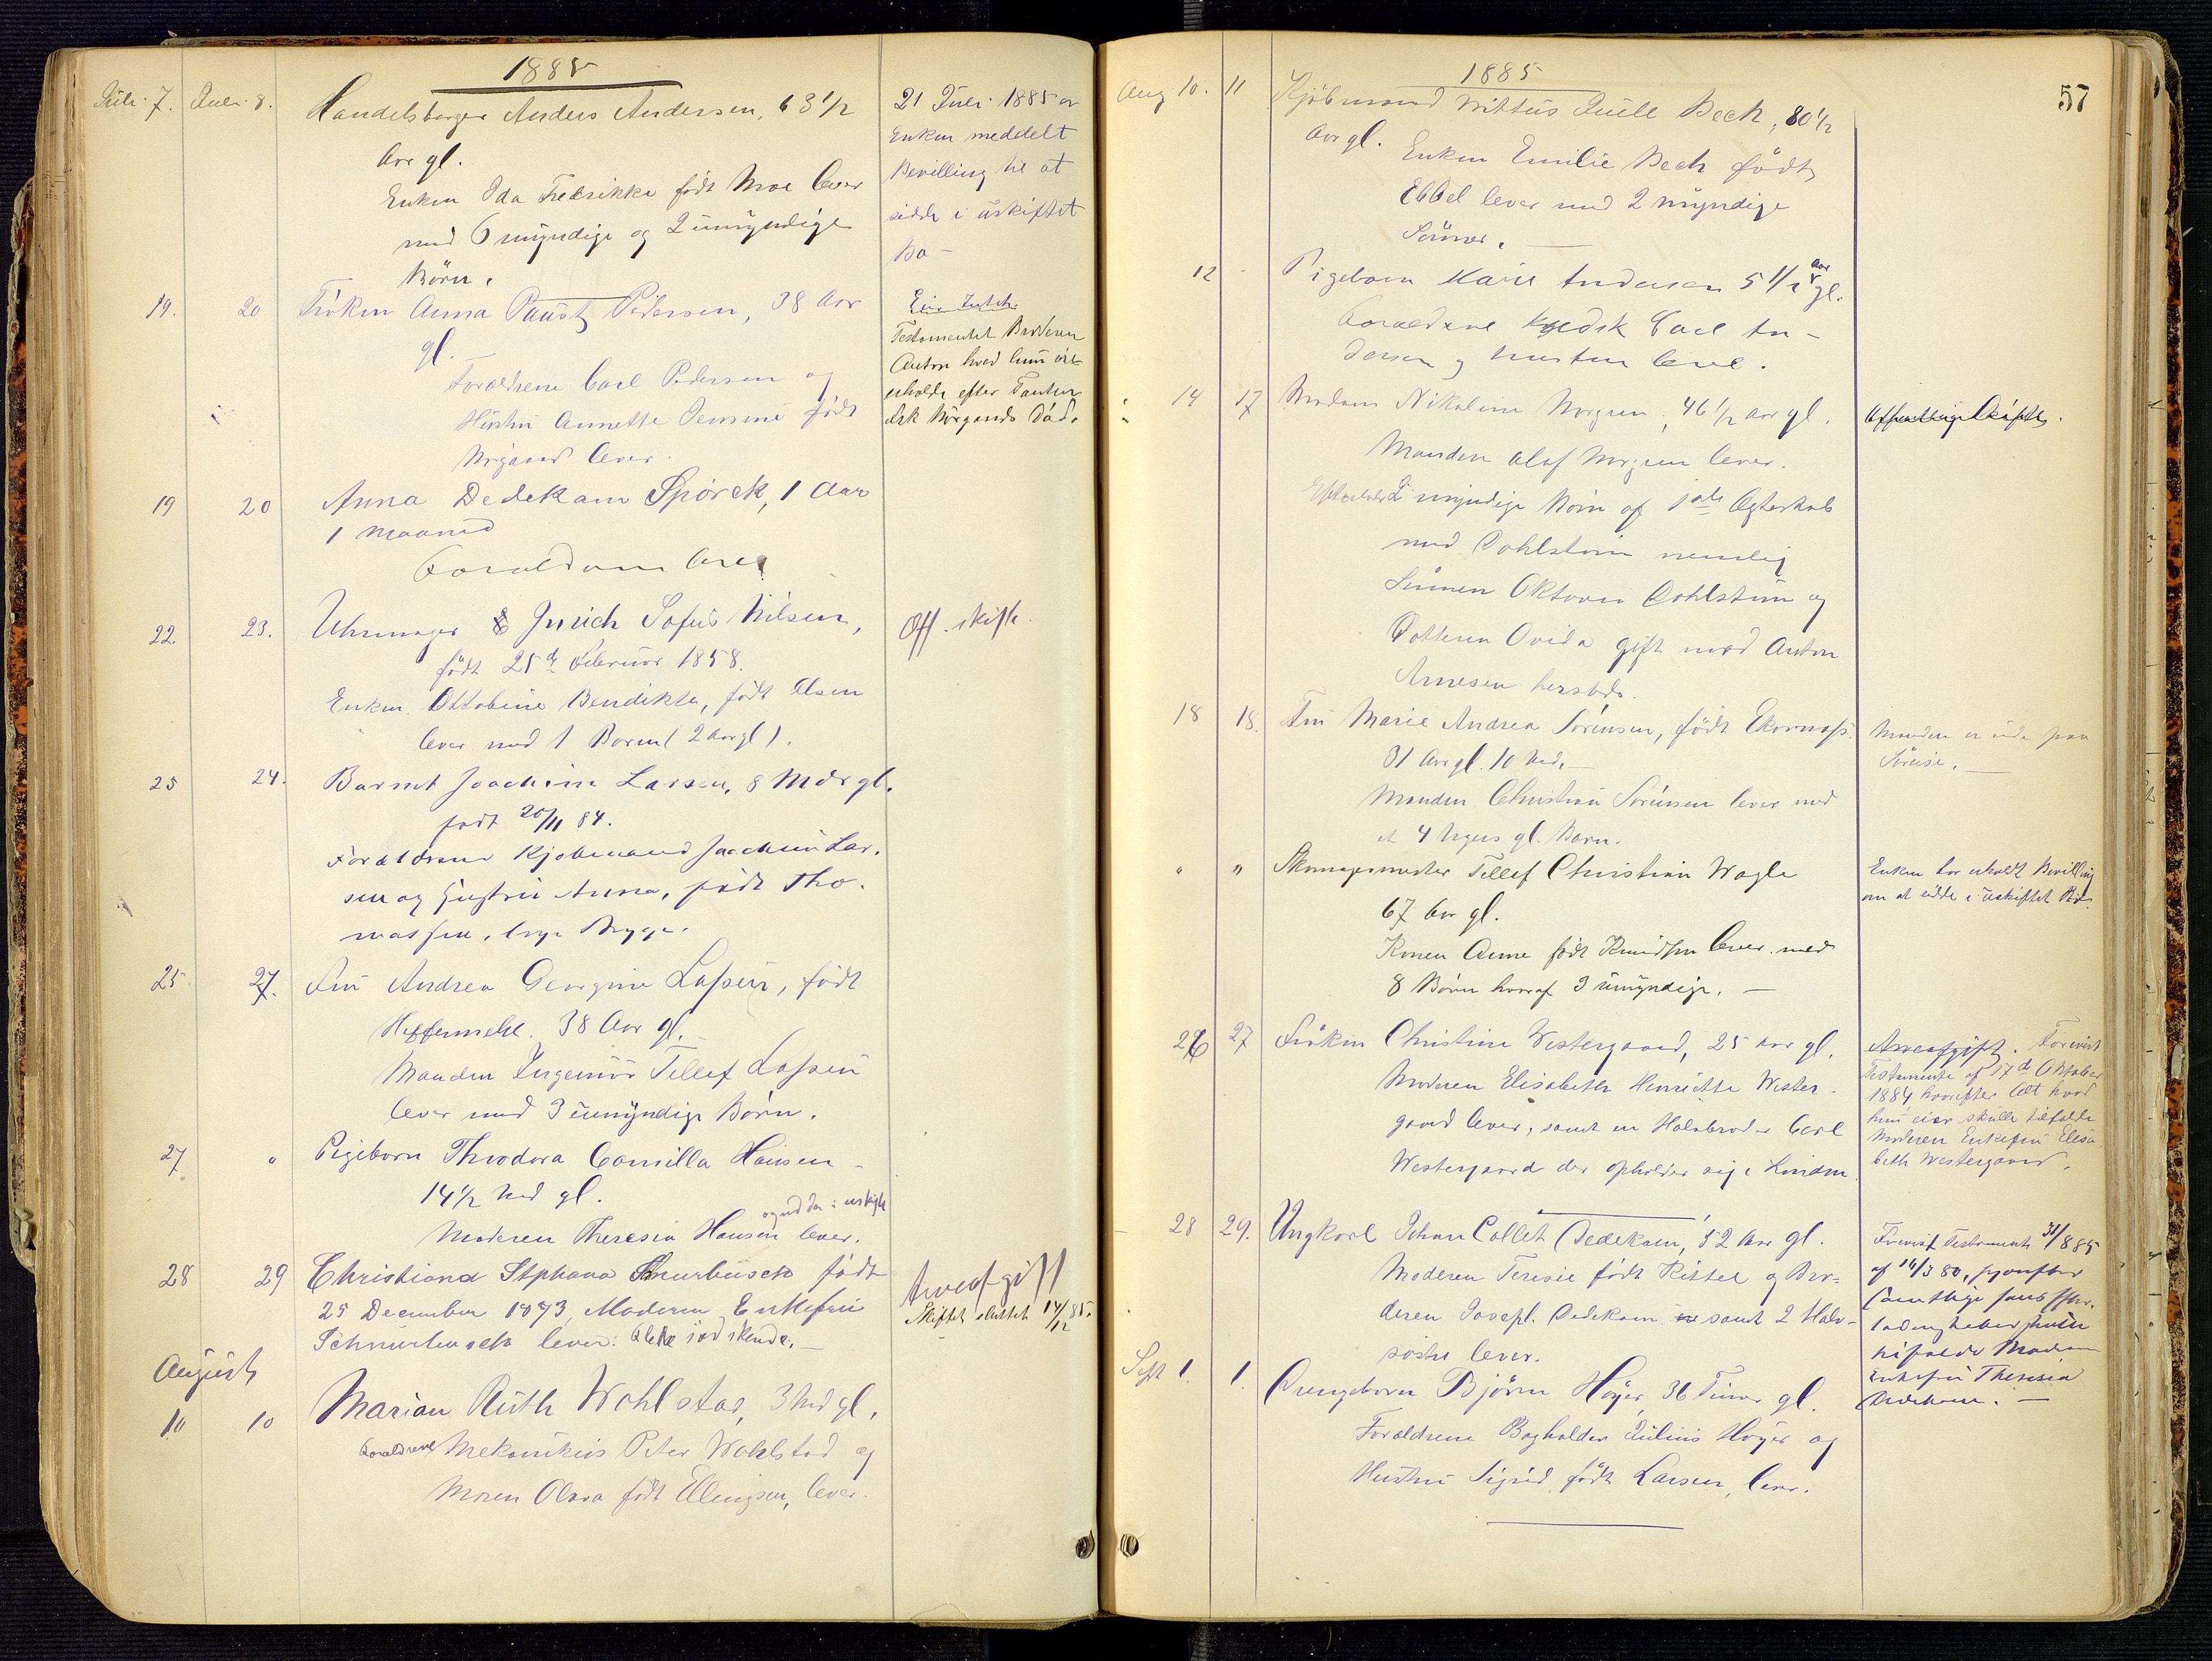 1885
Juli 7. Juli 8. Handelsborger Anders Andersen, 63 1/2
Aar gl.
Enken Ida Fredrikke født Moe lever
med 6 myndige og 2 umyndige
Børn.
21 Juli 1885 er
Enken meddelt
Bevilling til at
sidde i uskiftet
Bo -
19. 20 Frøken Anna Paust Pedersen, 38 Aar
gl.
Forældrene Carl Pedersen og
Hustru Annette Jensine født
lever.
Testamentet Broderen
Anton hvad hun
erholdt efter Tanten
Død.
19 20 Anna Dedekam Spørck, 1 Aar
1 Maaned
Forældrene lever
22. 23. Uhrmager Jurich Sofus Nilsen,
født 25de Februar 1858.
Enken Ottobine Bendikte, født Olsen
lever med 1 Barn (2 Aar gl).
Off. skifte
25 24. Barnet Joachim Larsen, 8 Mdr gl.
født 20/11 84.
Forældrene Kjøbmand Joachim Lar-
sen og Hustru Anna, født Tho-
massen, Brygge.
25 27. Fru Andrea Georgine Lassen, født
Heffermehl. 38 Aar gl.
Manden Ingeniør Tellef Lassen
lever med 3 umyndige Børn.
27 " Pigebarn Theodora Camilla Hansen
14 1/2 Md gl.
Moderen Theresia Hansen lever.
28 29 Christiana Stphana Schnurbusch født
25 December 1873, Moderen Enkefru
Schnurbusch lever.
Arveafgift
Skiftet sluttet 14/12 85.
August
10 10 Marian Ruth Wohlstad, 3 Md gl,
Forældrene Mekanikus Peter Wohlstad og
Konen Olava født Ellingsen, lever.
57
1885
Aug 10. 11 Kjøbmand Vittus Juell Bech, 80 1/2
Aar gl.
Enken Emilie Bech født
Ebbel lever med 2 myndige
Sønner.
12 Pigebarn Karii Andersen 5 1/2 Aar gl.
Forældrene Carl An-
dersen og hustru leve.
14 17 Madam Nikoline Norgren, 46 1/2 Aar gl.
Manden Olaf Norgren lever.
Efterlader 2 myndige Børn af 1ste Ægteskab
med Dahlstrøm nemlig
Sønnen Oktavius Dahlstrøm og
Datteren Ovida gift med Anton
Arnesen hersteds.
Offentlig Skifte.
18 18. Fru Marie Andrea Sørensen, født Ekornass
31 Aar gl. 10 Md.
Manden Christian Sørensen lever med
et 4 Uger gl. Barn.
Manden er ude paa
Søreise.
" " Skomagermester Tellef Christian Wagle
67 Aar gl.
Konen Anne født Knudsen lever med
8 Børn hvoraf 3 umyndige.
Enken har erholdt Bevilling
om at sidde i uskiftet Bo.
26 27 Frøken Christine Westergaard, 25 Aar gl.
Moderen Elisabeth Henriette Wester-
gaard lever, samt en Halvbroder Carl
Westergaard der opholder sig i London
Arveafgift. Forevist
Testamente af 17de Oktober
1884 hvorefter Alt hvad
hun eier skulle tilfalde
Moderen Enkefru Elisa-
beth Westergaard.
28 29. Ungkarl Johan Collet Dedekam, 52 Aar gl.
Moderen Teresie født Kittel og Bro-
deren Joseph Dedekam samt 2 Halv-
søstre lever.
Forevist Testament 31/8 85
af 14/3 80, hvorefter
samtlige hans Efter-
ladenskaber
tilfalde Moderen
Enkefru Theresia
Dedekam.
Sept 1. 1. Drengebarn Bjørn Høyer, 36 Timer gl.
Forældrene Bogholder Julius Høyer og
Hustru Sigrid, født Larsen, lever.